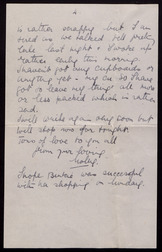 4
is rather snappy but I am
tired as we talked till pretty
late last night & I woke up
rather early this morning
I haven't got my cupboards or
anything yet. My
for to leave my things all more
or less packed which is rather
sad.
I will write again very soon but
will stop now for tonight.
Tons of love to you all
from your loving
I hope
was successful
with the shopping on Sunday.